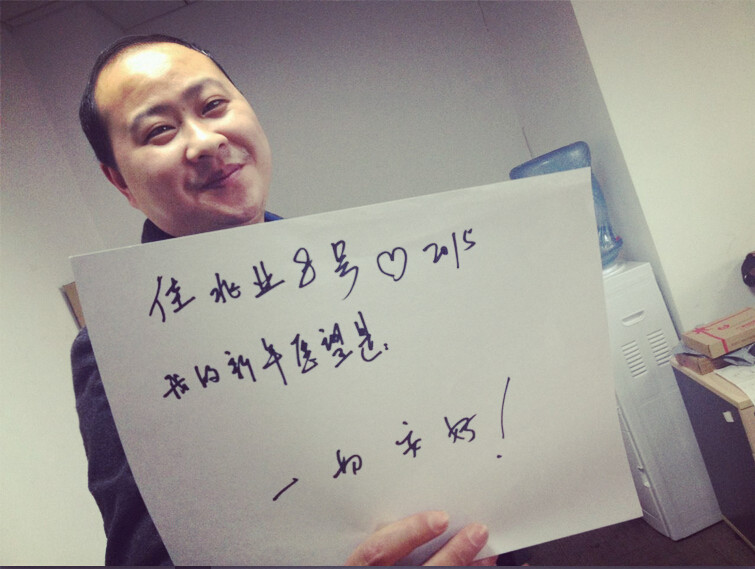 佳兆业8号♡2015
我的新年愿望是:
一切安好!